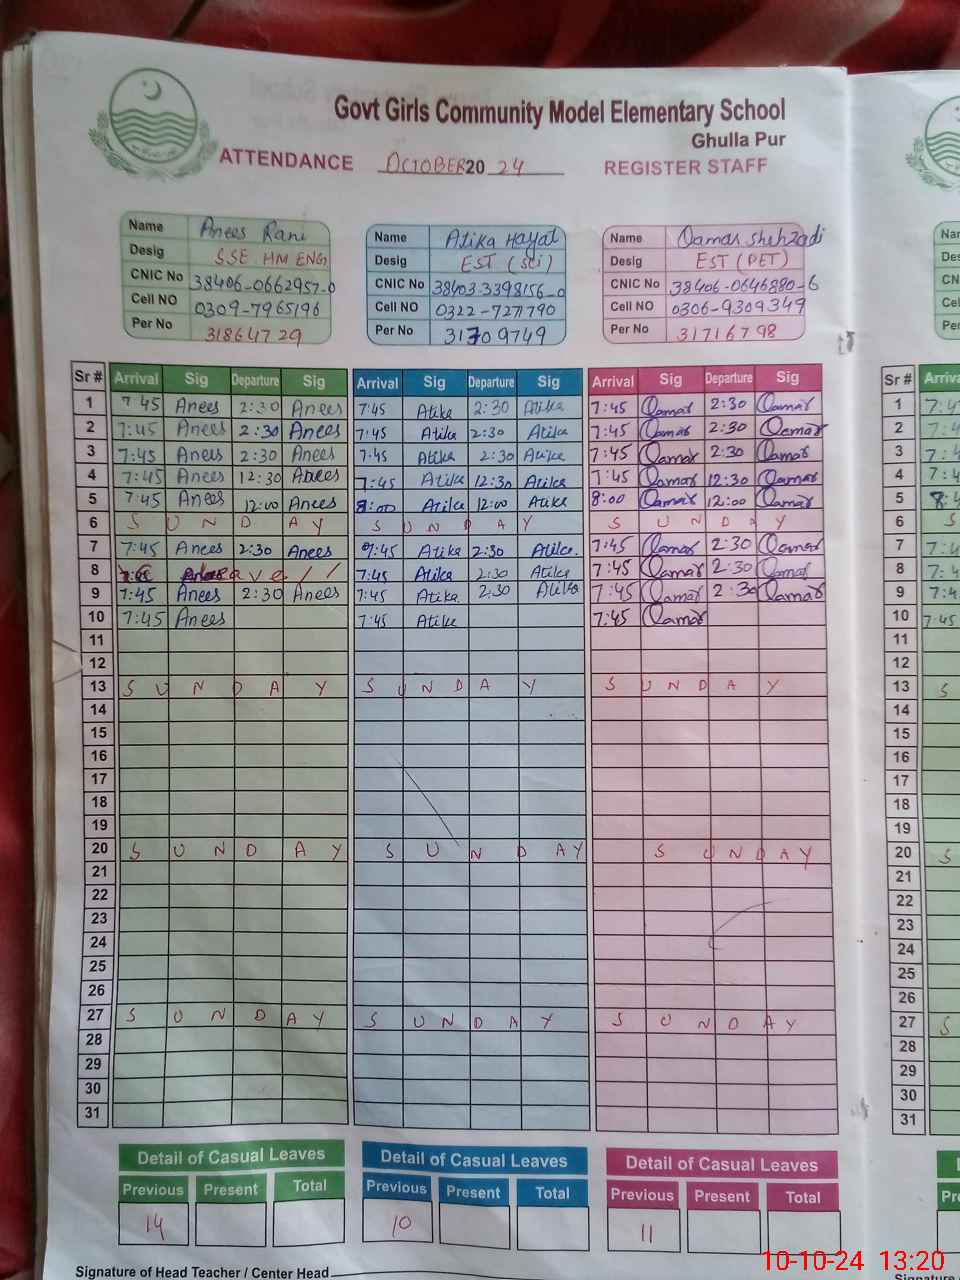 Govt Girls Community Model Elementary School
Ghulla Pur
ATTENDANCE OCTOBER 20 24 REGISTER STAFF
Name Anees Rani
Desig SSE HM ENG
CNIC No 38406-0662957-0
Cell NO 0309-7965196
Per No 31864729
Name Atika Hayat
Desig EST (Sci)
CNIC No 38403-3398156-0
Cell NO 0322-7271790
Per No 31709749
Name Qamar Shehzadi
Desig EST (PET)
CNIC No 38406-0646880-6
Cell NO 0306-9309349
Per No 31716798
Sr # Arrival Sig Departure Sig Arrival Sig Departure Sig Arrival Sig Departure Sig Sr #
1 7 45 Anees 2:30 Anees 7:45 Atika 2:30 Atika 7:45 Qamar 2:30 Qamar 1
2 7:45 Anees 2:30 Anees 7:45 Atika 2:30 Atika 7:45 Qamar 2:30 Qamar 2
3 7:45 Anees 2:30 Anees 7:45 Atika 2:30 Atika 7:45 Qamar 2:30 Qamar 3
4 7:45 Anees 12:30 Anees 7:45 Atika 12:30 Atika 7:45 Qamar 12:30 Qamar 4
5 7:45 Anees 12:00 Anees 8:00 Atika 12:00 Atika 8:00 Qamar 12:00 Qamar 5
6 S U N D A Y S U N D A Y S U N D A Y 6 S
7 7:45 Anees 2:30 Anees 7:45 Atika 2:30 Atika. 7:45 Qamar 2:30 Qamar 7
8 Leave // 7:45 Atika 2:30 Atika 7:45 Qamar 2:30 Qamar 8
9 7:45 Anees 2:30 Anees 7:45 Atika. 2:30 Atika 7:45 Qamar 2:30 Qamar 9
10 7:45 Anees 7:45 Atika 7:45 Qamar 10 7:45
11 11
12 12
13 S U N D A Y S U N D A Y S U N D A Y 13 S
14 14
15 15
16 16
17 17
18 18
19 19
20 S U N D A Y S U N D A Y S U N D A Y 20 S
21 21
22 22
23 23
24 24
25 25
26 26
27 S U N D A Y S U N D A Y S U N D A Y 27 S
28 28
29 29
30 30
31 31
Detail of Casual Leaves Detail of Casual Leaves Detail of Casual Leaves
Previous Present Total Previous Present Total Previous Present Total
14 10 11
Signature of Head Teacher / Center Head
10-10-24 13:20